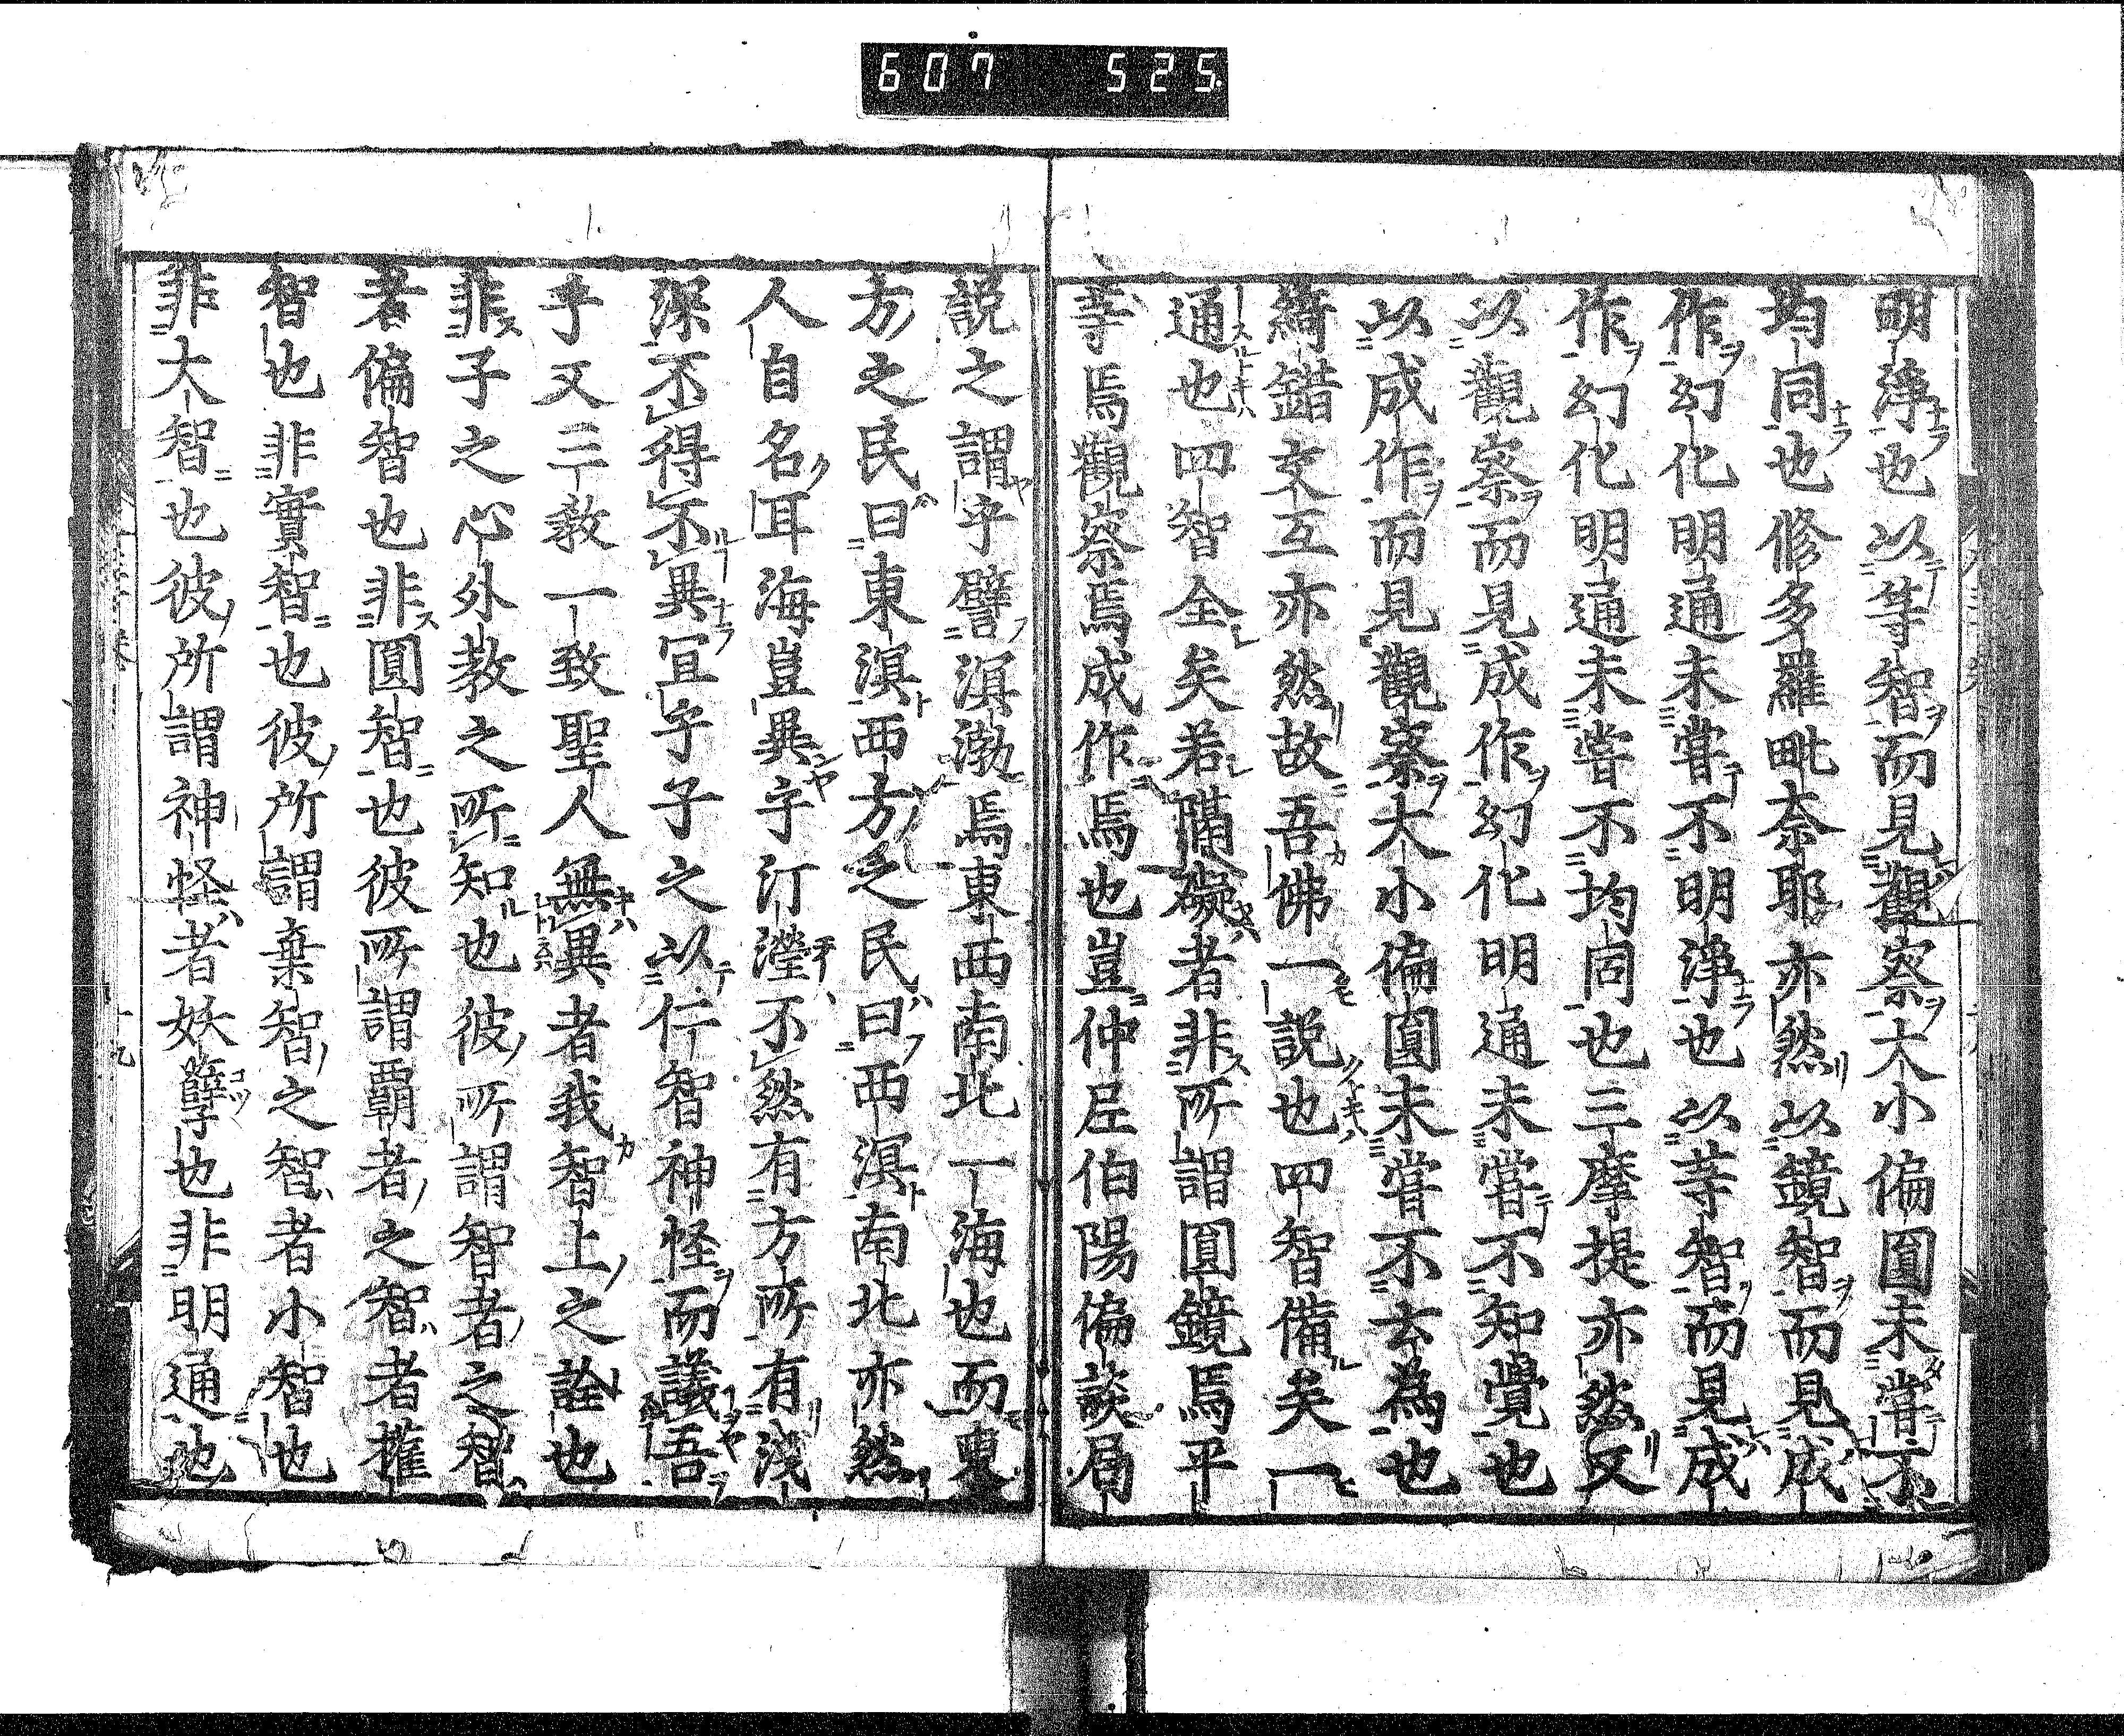 607 525
明淨也以等智而見觀察大小偏圓未嘗不
均同也修多羅毗奈耶亦然以鏡智而見成
作幻化明通未嘗不明淨也以等智而見成
作幻化明通未嘗不均同也三摩提亦然又
以觀察而見成作幻化明通未嘗不知覺也
以成作而見觀察大小偏圓未嘗不云為也
綺錯交互亦然故吾佛一說也四智備矣一
通也四智全矣若隔礙者非所謂圓鏡焉平
等焉觀察焉成作焉也豈仲尼伯陽偏談局
說之謂乎譬溟渤焉東西南北一海也而東
方之民曰東溟西方之民曰西溟南北亦然
人自名耳海豈異乎汀瀅不然有方所有淺
深不得不異宜乎子之以仁智神怪而議吾
乎又三教一致聖人無異者我智上之詮也
非子之心外教之所知也彼所謂智者之智
者偏智也非圓智也彼所謂覇者之智者權
智也非實智也彼所謂棄智之智者小智也
非大智也彼所謂神怪者妖孽也非明通也